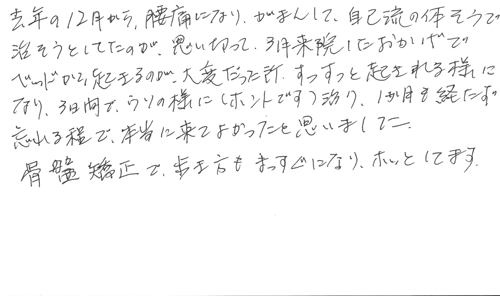 去年の12月から、腰痛になり、がまんして、自己流の体そうで
治そうとしてたのが、思い切って、3月来院したおかげで
ベッドから起きるのが、大変だった所、すっすっと起きれる様に
なり、3日間で、ウソの様に(ホントです)治り、1か月も経たず
忘れる程で、本当に来てよかったと思いました。
骨盤矯正で、歩き方もまっすぐになり、ホッとしてます。